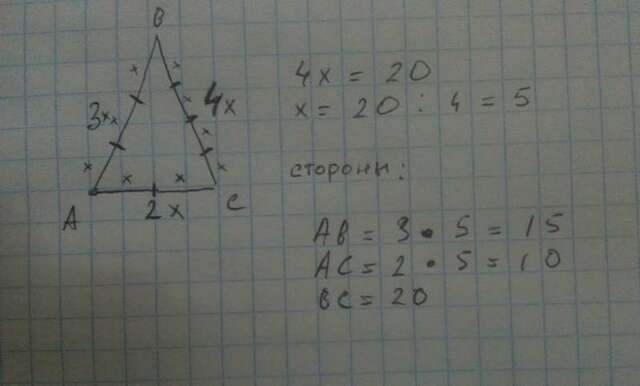 B
x x
x
3x x 4x
x
x x x x
A 2x C
4x = 20
x = 20 : 4 = 5
стороны:
AB = 3 • 5 = 15
AC = 2 • 5 = 10
BC = 20